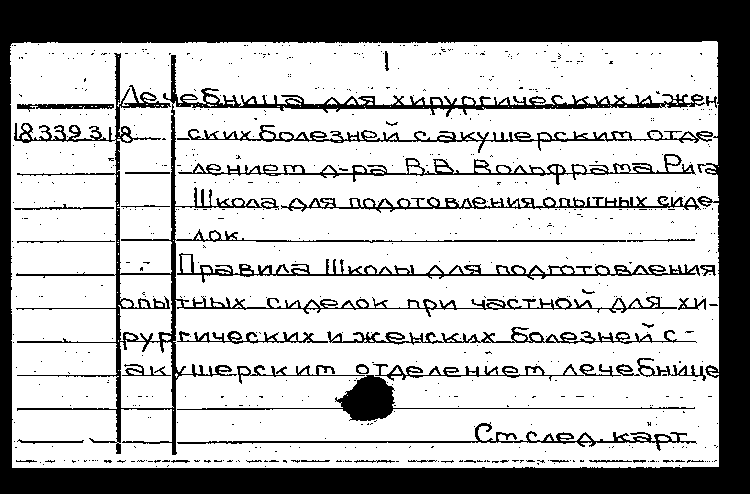 Лечебница для хирургических и жен
18.339.3.18 ских болезней с акушерским отде-
лением д-ра В.В. Вольфрама. Рига
Школа для подотовления опытных сиде-
лок.
Правила Школы для подготовления
опытных сиделок при частной, для хи-
рургических и женских болезней с-
акушерским отделением, лечебнице
См след. карт